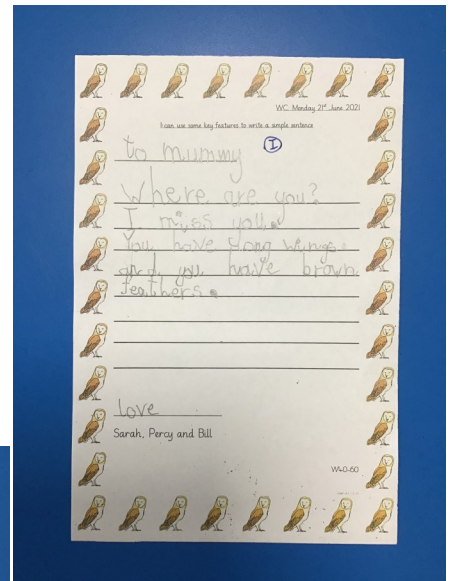 WC Monday 21st June 2021
I can use some key features to write a simple sentence
to mummy
I
Where are you?
I miss you.
You have long wings
and you have brown
feathers.
love
Sarah, Percy and Bill
W40-60